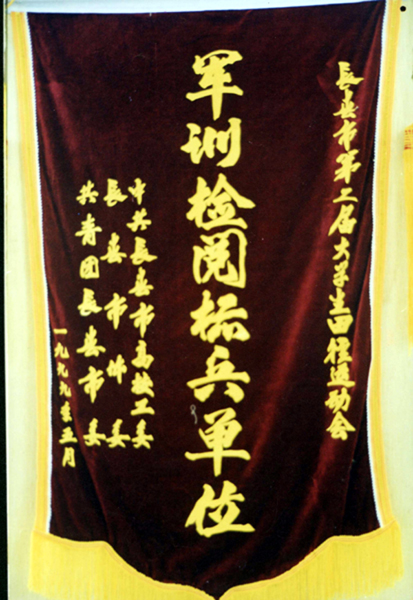 長春市第二届大学生田径运动会
军训检阅标兵单位
中共長春市高校工委
長春市体委
共青团長春市委
一九九九年五月